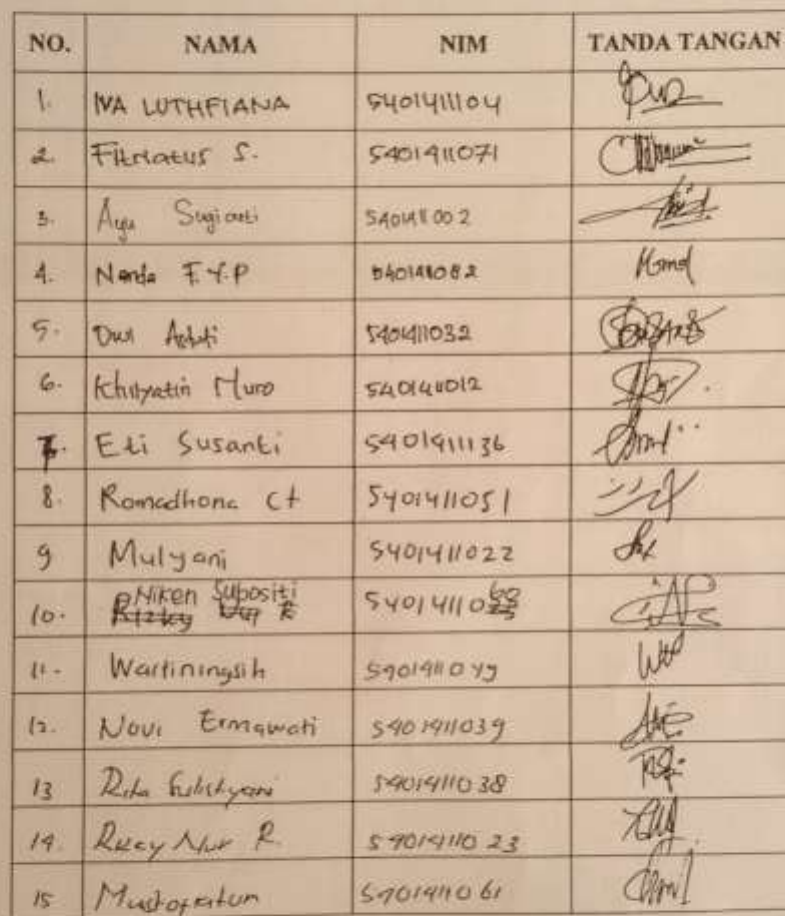 NO. NAMA NIM TANDA TANGAN
1. IVA LUTHFIANA 5401411104
2. Fitriatus S. 5401411071
3. Ayu Sugiarti 5401411002
4. Nanda F.Y.P 5401411082
5. Dwi Astuti 5401411032
6. Khilyatin Muro 5401411012
7. Eti Susanti 5401411136
8. Romadhona Ct 5401411051
9 Mulyani 5401411022
10. Niken Supositi
11. Wartiningsih 5401411049
12. Novi Ermawati 5401411039
13 Rita Sulistyani 5401411038
14. Rizey Nur R. 5401411023
15 5401411061